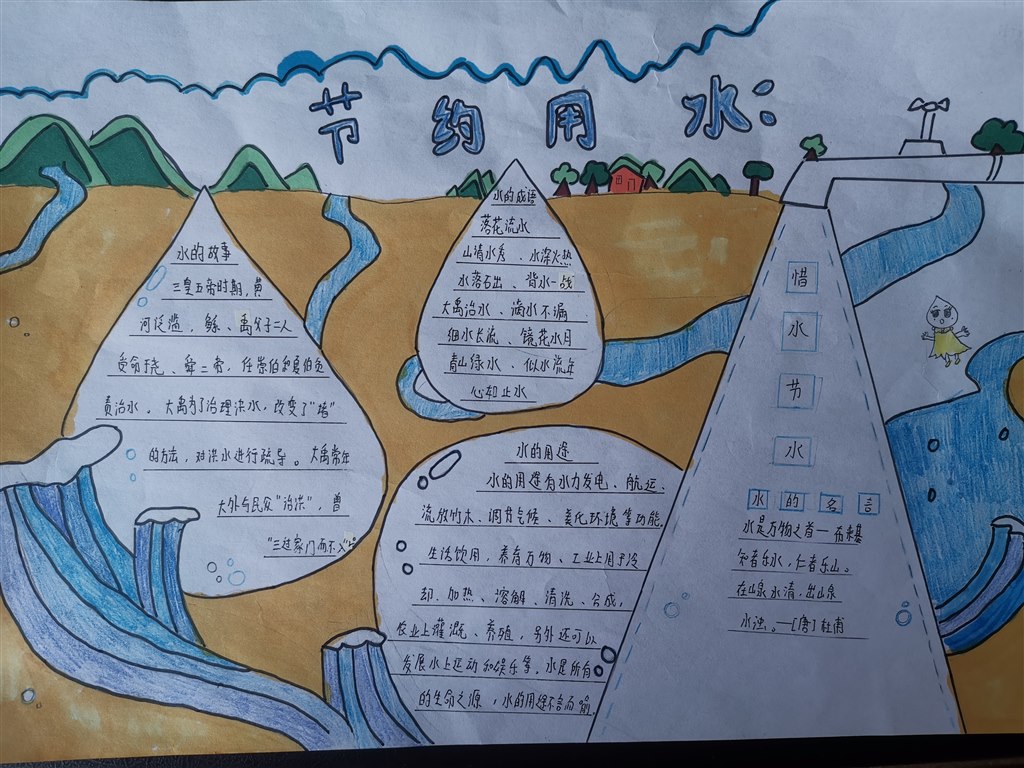 节约用水:
水的故事
三皇五帝时期,黄
河泛滥,鲧、禹父子二人
受命于尧、舜二帝,任崇伯和夏伯负
责治水。大禹为了治理洪水,改变了"堵"
的方法,对洪水进行疏导。大禹常年
大外与民众"治洪",曾
"三过家门而不入"
水的成语
落花流水
山清水秀、水深火热
水落石出、背水一战
大禹治水、滴水不漏
细水长流、镜花水月
青山绿水、似水流年
心如止水
水的用途
水的用途有水力发电、航运、
流放竹木、调节气候、美化环境等功能。
生活饮用,养育万物、工业上用于冷
却、加热、溶解、清洗、合成,
农业上灌溉、养殖,另外还可以
发展水上运动和娱乐等。水是所有
的生命之源,水的用途不言而喻。
惜
水
节
水
水的名言
水是万物之者—布莱基
知者乐水,仁者乐山。
在山泉水清,出山泉
水浊。—[唐]杜甫